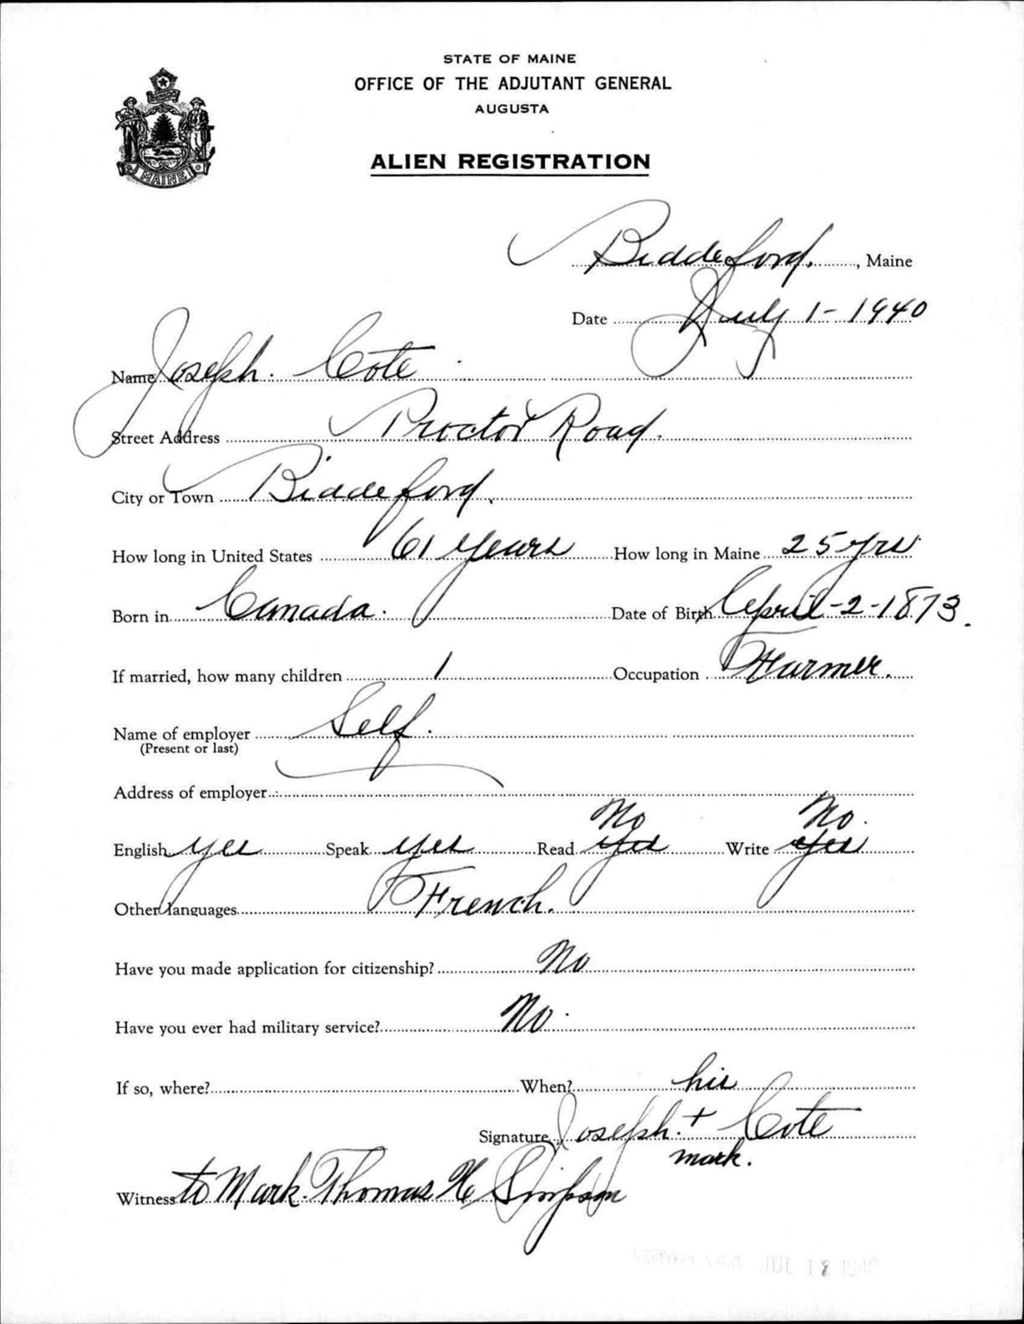 STATE OF MAINE
OFFICE OF THE ADJUTANT GENERAL
AUGUSTA
MAINE
ALIEN REGISTRATION
Biddeford, Maine
Date July 1-1940
Name Joseph. Cote
Street Address Proctor Road.
City or Town Biddeford.
How long in United States 61 years How long in Maine 25 yrs
Born in Canada. Date of Birth April-2-1873.
If married, how many children 1 Occupation Farmer.
Name of employer Self.
(Present or last)
Address of employer
No No.
English yes Speak yes Read yes Write yes
Other languages French.
Have you made application for citizenship? No
Have you ever had military service? No.
If so, where? When?
his
Signature Joseph. + Cote
mark.
Witness to Mark. Thomas H Simpson
JUL 12 1940